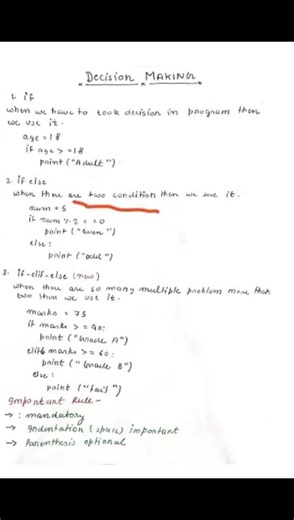 Decision MAKING
1. if
when we have to took decision in program then
we use it.
age = 18
if age >= 18
print ("Adult")
2. if else
when there are two condition then we use it.
num = 5
if num % 2 = = 0
print ("even")
else:
print ("odd")
3. if-elif-else (new)
when there are so many multiple problem more that
two then we use it.
marks = 75
if marks >= 90:
print ("Grade A")
elif marks >= 60:
print ("Grade B")
else:
print ("fail")
Important Rule -
→ : mandatory
→ Indentation (space) important
→ Parenthesis optional